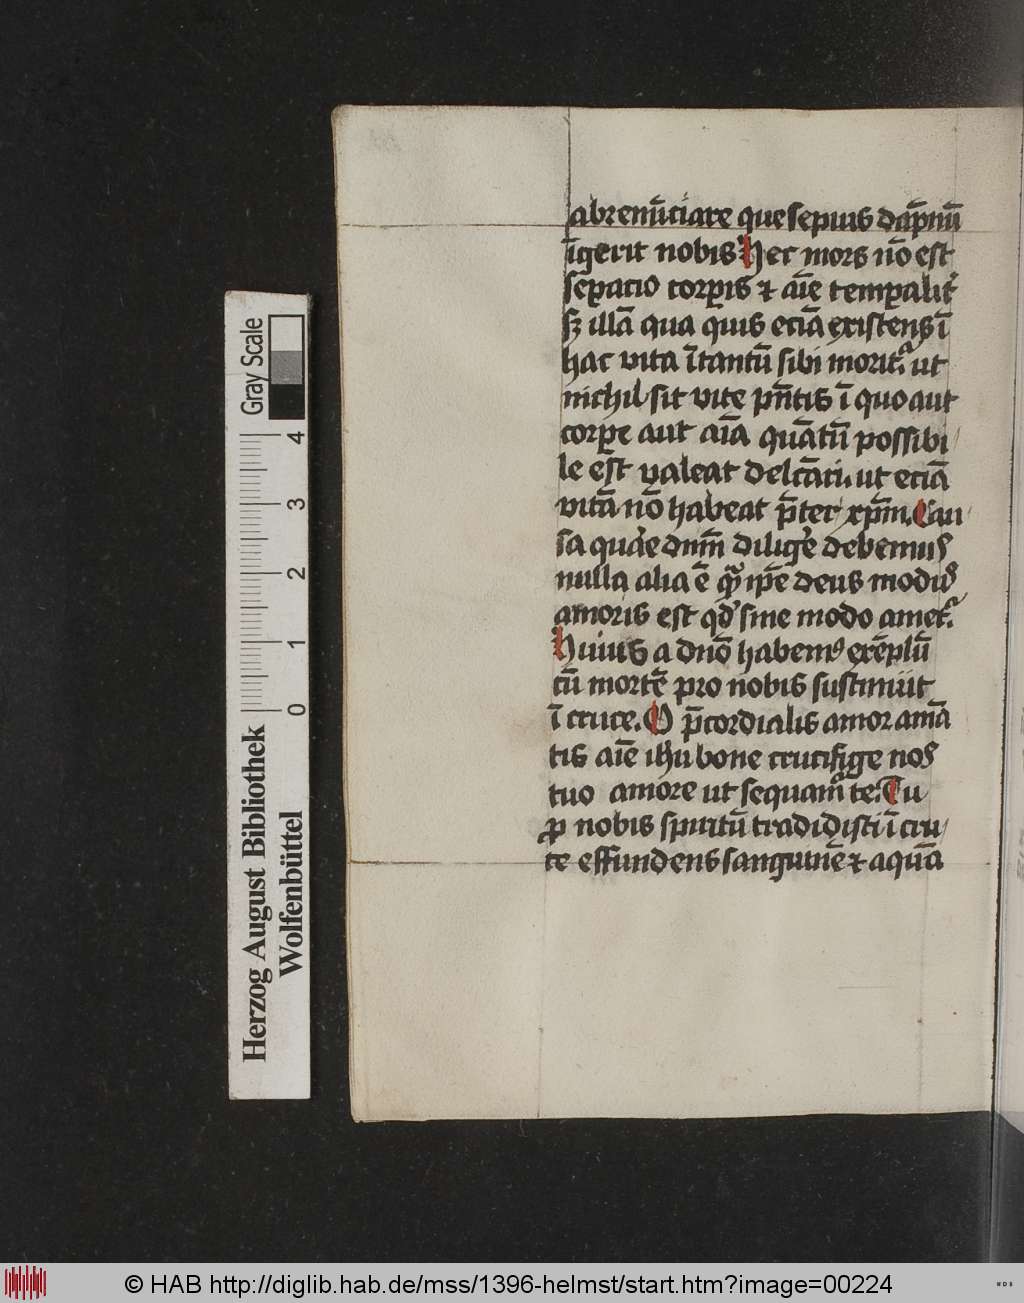 abrenūciare que sepius dāpnū
īgerit nobis Hec mors nō est
seꝑacio corꝑis ⁊ aīe temꝑalit᷑
sꝫ illā qua quis eciā existens ī
hac vita ītantū sibi morit᷑ ut
nichil sit vite pn̄tis ī quo aut
corꝑe aut aīa quātū possibi
le est valeat delcāri ut eciā
vitā nō habeat p̄ter xp̄m. Cau
sa quare dn̄m diligere debemus
nulla alia ē qm̄ ip̄e deus modus
amoris est qd' sine modo amet᷑
Huius a dn̄o habemꝰ exēplū
cū mortē pro nobis sustinuit
ī cruce. O p̄cordialis amor amā
tis aīe ihu bone crucifige nos
tuo amore ut sequam᷑ te. Tu
ꝓ nobis spiritū tradidisti ī cru
ce effundens sanguinē ⁊ aquā
Herzog August Bibliothek
Wolfenbüttel
0 1 2 3 4
Gray Scale
© HAB http://diglib.hab.de/mss/1396-helmst/start.htm?image=00224